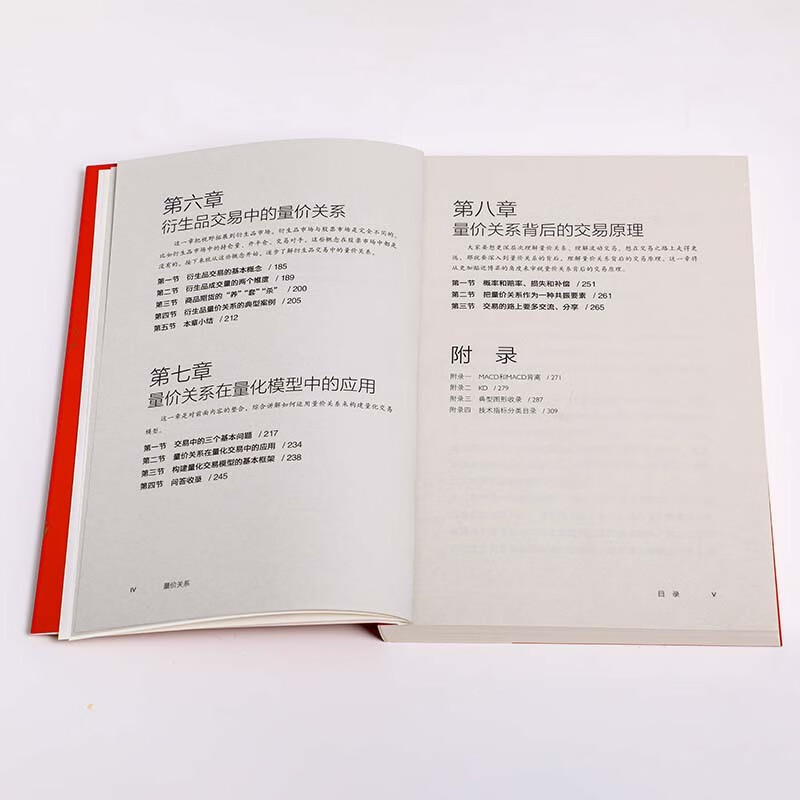 第六章
衍生品交易中的量价关系
这一章把视野拓展到衍生品市场。衍生品市场与股票市场是完全不同的，
比如衍生品市场中的持仓量、开平仓、交易对手，这些概念在股票市场中都是
没有的。接下来就从这些概念开始，逐步了解衍生品交易中的量价关系。
第一节 衍生品交易的基本概念 /185
第二节 衍生品成交量的两个维度 /189
第三节 商品期货的“养”“套”“杀” /200
第四节 衍生品量价关系的典型案例 /205
第五节 本章小结 /212
第七章
量价关系在量化模型中的应用
这一章是对前面内容的整合，综合讲解如何运用量价关系来构建量化交易
模型。
第一节 交易中的三个基本问题 /217
第二节 量价关系在量化交易中的应用 /234
第三节 构建量化交易模型的基本框架 /238
第四节 问答收录 /245
IV 量价关系
第八章
量价关系背后的交易原理
大家要想更深层次理解量价关系、理解波动交易，想在交易之路上走得更
远，那就要深入到量价关系的背后，理解量价关系背后的交易原理。这一章将
从更加贴近博弈的角度来审视量价关系背后的交易原理。
第一节 概率和赔率、损失和补偿 /251
第二节 把量价关系作为一种共振要素 /261
第三节 交易的路上要多交流、分享 /265
附 录
附录一 MACD和MACD背离 /271
附录二 KD /279
附录三 典型图形收录 /287
附录四 技术指标分类目录 /309
目 录 V